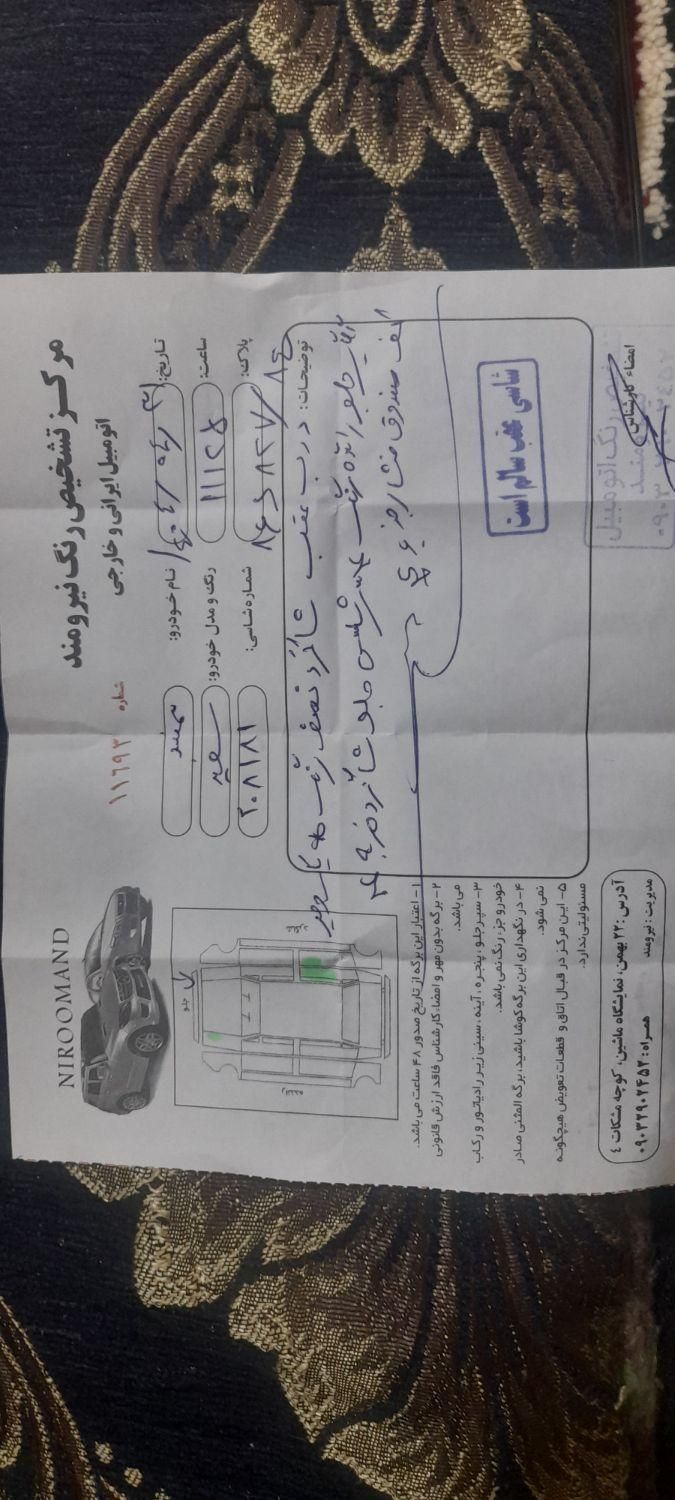 مرکز تشخیص رنگ نیرومند
اتومبیل ایرانی و خارجی
شماره ۱۱۶۹۳
NIROOMAND
تاریخ:
نام خودرو: سمند
ساعت: ۱۱:۲۵
رنگ و مدل خودرو: سفید
پلاک:
شماره شاسی: ۲۰۸۱۸۱
جلو
توضیحات: درب عقب شاگرد نصف رنگ
رنگ شاسی جلو شاگرد ضربه
کف صندوق
شاسی عقب سالم است
۱- اعتبار این برگه از تاریخ صدور ۴۸ ساعت می باشد.
۲- برگه بدون مهر و امضاء کارشناس فاقد ارزش قانونی
می باشد.
۳- سپر جلو، پنجره، آینه، سینی زیر رادیاتور و رکاب
خودرو جزء رنگ نمی باشد.
۴- در نگهداری این برگه کوشا باشید، برگه المثنی صادر
نمی شود.
۵- این مرکز در قبال اتاق و قطعات تعویض هیچگونه
مسئولیتی ندارد.
امضاء کارشناس
آدرس: ۲۲ بهمن، نمایشگاه ماشین، کوچه مشکات ٤
مدیریت: نیرومند
همراه: ۰۹۰۳۲۹۰۲۴۵۲